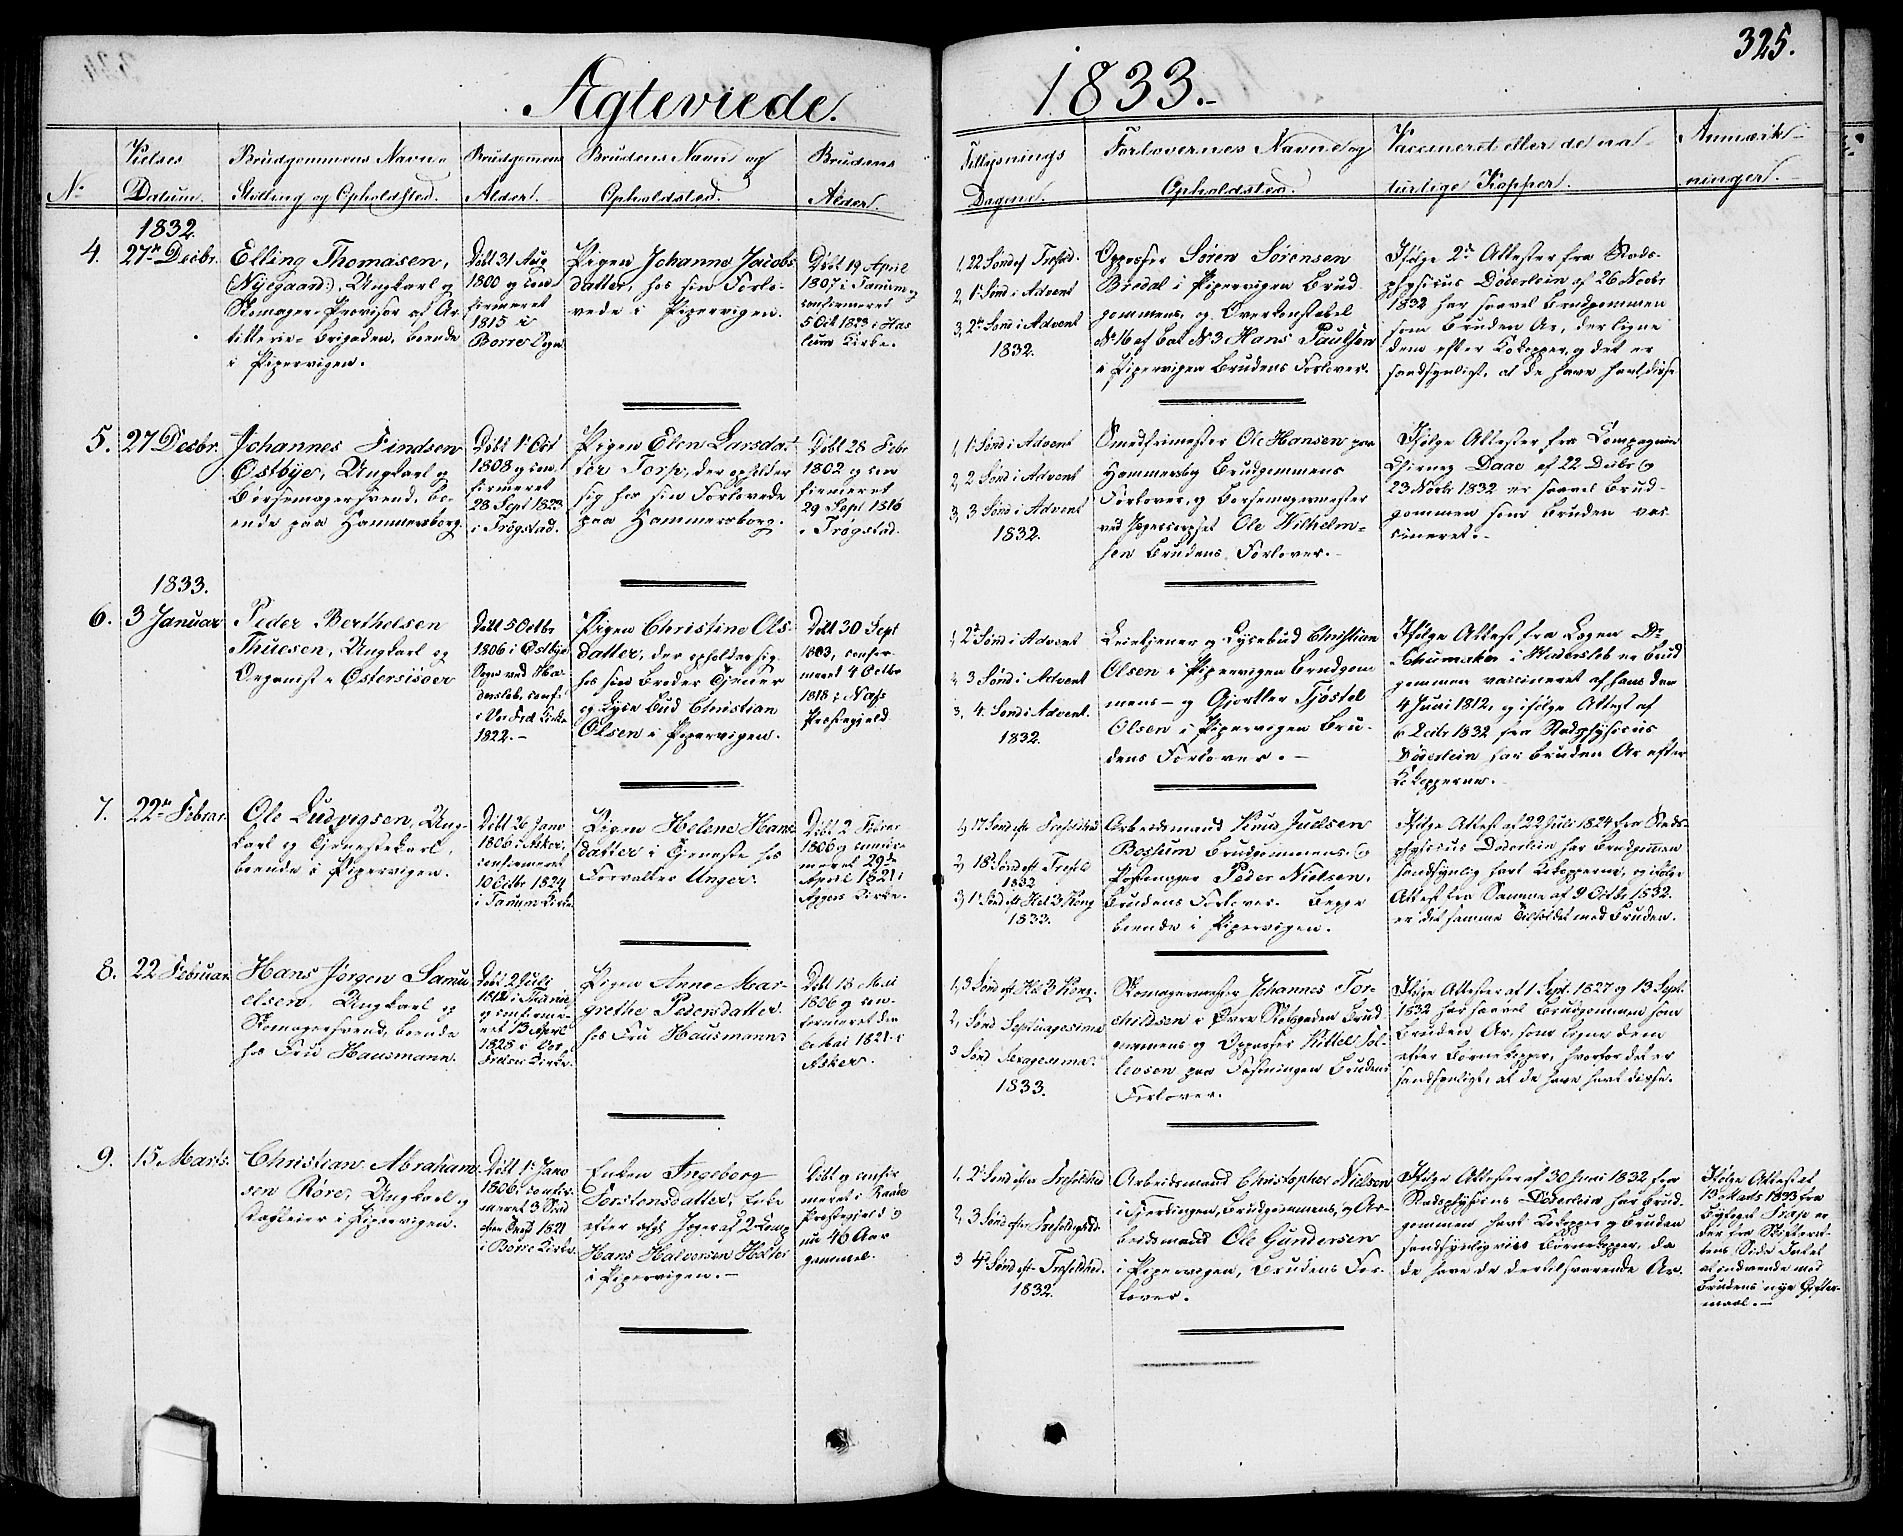 325.
Ægteviede. 1833.
No
Vielses Datum.
Brudgommens Navn,
Stilling og Opholdsted.
Brudgomens
Alder.
Brudens Navn og
Opholdsted.
Brudens
Alder.
Tillysnings
Dagene.
Forlovernes Navne og
Opholdsted.
Vaccineret eller de na-
turlige Kopper.
Anmærk-
ninger.
1832.
4.
27n Decbr.
Elling Thomasen,
(Nyegaard), Ungkarl og
Skomager-Provisor af Ar
tillerie-Brigaden, boende
i Pipervigen.
Døbt 31 Aug
1800 og con
firmeret
1815 i
Borre Sogn
Pigen Johanne Jacobs
datter, hos sin Forlo-
vede i Pipervigen.
Døbt 19 April
1807 i Tanum og
confirmeret
5 Oct 1823 i Has
lum Kirke.
1, 22 Sønd ef Trefold.
2, 1e Sønd i Advent
3, 2n Sønd i Advent
1832.
Oppasser Søren Sørensen
Bredal i Pipervigen Brud
gommens, og Overkonstabel
No 16 af Bat No 3 Hans Paulsen
i Pipervigen Brudens Forlover.
Ifølge 2de Attester fra Stads-
physicus Døderlein af 26 Novbr
1832 har saavel Brudgommen
som Bruden Ar, der ligne
dem efter Kokopper, og det er
sandsynligt, at de have havt disse
5.
27 Decbr.
Johannes Findsen
Østbye, Ungkarl og
Børsemagersvend, bo-
ende paa Hammersborg
Døbt 1e Oct
1808 og con
firmeret
28 Sept 1823
i Trøgstad.
Pigen Elen Larsdat
ter Torp, der opholder
sig hos sin Forlovede
paa Hammersborg.
Døbt 28 Febr
1802 og con
firmeret
29 Sept 1816
i Trøgstad.
1, 1 Sønd i Advent
2, 2 Sønd i Advent
3, 3 Sønd i Advent
1832.
Smedsmester Ole Hansen paa
Hammersborg Brudgommens
Forlover, og Børsemagermester
ved Jægercorpset Ole Wilhelm-
sen Brudens Forlover.
Ifølge Attester fra Compagnie
Chirurg Daae af 22 Decbr og
23 Novbr 1832 er saavel Brud-
gommen som Bruden vac
cineret.
1833.
6.
3 Januar
Peder Berthelsen
Thuesen, Ungkarl og
Organist i Østersisøer
Døbt 5 Octbr
1806 i Østbye
Sogn ved Ha-
dersleb, conf.
i Vor Frel Kirke
1822.
Pigen Christine Ols
datter, der opholder sig
hos sin Broder Tjener
og Lyse Bud Christian
Olsen i Pipervigen.
Døbt 30 Sept
1803, confir
meret 4 Octbr
1818 i Næs
Præstegjeld
1, 2n Sønd i Advent
2, 3 Sønd i Advent
3, 4. Sønd i Advent.
1832.
Leietjener og Lysebud Christian
Olsen i Pipervigen Brudgom
mens - og Gjørtler Tjøstel
Olsen i Pipervigen Bru-
dens Forlover.
Ifølge Attest fra Lægen Dr
Schumaker i Hadersleb er Brud
gommen vaccineret af ham den
4 Juni 1812, og ifølge Attest af
6 Decbr 1832 fra Stadsphysicus
Døderlein har Bruden Ar efter
Kokopperne.
7.
22n Februar.
Ole Ludvigsen, Ung-
karl og Tjenestekarl,
boende i Pipervigen.
Døbt 26 Janv
1806 i Asker,
confirmeret
10 Octbr 1824
i Tanum Kirke
Pigen Helene Hans
datter i Tjeneste hos
Forvalter Unger.
Døbt 2 Februar
1806 og confir
meret 29de
April 1821 i
Aggers Kirke.
1, 17 Sønd eft Trefoldhed
2, 18n Sønd eft Trefold
1832
3, 1e Sønd eft Hel 3 Kong
1833.
Arbeidsmand Knud Juelsen
Bossum Brudgommens og
Skomager Peder Nielsen,
Brudens Forlover. Begge
boende i Pipervigen.
Ifølge Attest af 22 Juli 1824 fra Stads-
physicus Døderlein har Brudgommen
sandsynlig havt Kokopperne, og ifølge
Attest fra Samme af 9 Octbr 1832.
er det samme Tilfældet med Bruden.
8.
22 Februar.
Hans Jørgen Samu
elsen, Ungkarl og
Skomagersvend, boende
hos Fru Hausmann.
Døbt 2 Juli
og confirme-
ret 13 April
1828 i Vor
Frelser Kirke.
Pigen Anne Mar-
grethe Pedersdatter
hos Fru Hausmann.
Døbt 18 Mai
1806 og con
firmeret den
6 Mai 1821 i
Asker.
1, 3 Sønd eft Hel 3 Kong.
2, Sønd Septuagesima
3 Sønd Sexagesima.
1833.
Skomagermester Johannes Tor-
childsen i Øvre Slotsgaden Brud
gommens og Oppasser Kittel Tol-
levsen paa Fæstningen Brudens
Forlover.
Ifølge Attester af 1 Sept. 1827 og 13 Sept.
1832 har saavel Brudgommen som
Bruden Ar, som ligne dem
efter Børnekopper, hvorfor det er
sandsynligt, at de have havt disse.
9.
15 Marts.
Christian Abraham
sen Røre, Ungkarl og
i Pipervigen.
Døbt 1e Janv
1806, confir-
meret 3 Sønd
1821
i Borre Kirke.
Enken Ingeborg
Torstensdatter, Enke
efter afgl Jæger af 2 Comp
Hans Halvorsen Holter
i Pipervigen.
Døbt og confir
meret i Raade
Præstegjeld og
nu 46 Aar
gammel.
1. 2n Sønd efter Trefoldhed
2, 3 Sønd efter Trefoldighed
3 4de Sønd eft Trefoldhed.
1832.
Arbeidsmand Christopher Nielsen
i Fjerdingen, Brudgommens, og Ar-
beidsmand Ole Gundersen
i Pipervigen, Brudens For-
lover.
Ifølge Attester af 30 Juni 1832 fra
Stadsphysicus Døderlein har Brud
gommen havt Kokopper og Bruden
sandsynligviis Børnekopper, da
de have de dertil svarende Ar.
Ifølge Attest af
13 Marts 1833 fra
Byfoget Frøys er
der fra Skifteret-
tens Side Intet
at indvende mod
Brudens nye Gifter-
maal.